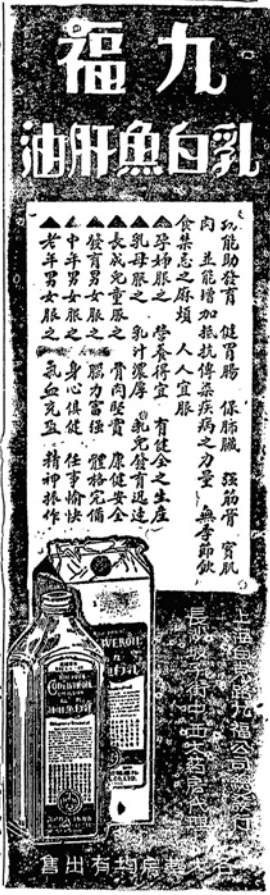 九福
乳白魚肝油
功能助發育 健胃腸 保肺臟 強筋骨 實肌
肉 並能增加抵抗傳染疾病之力量 無季節飲
食禁忌之麻煩 人人宜服
▲孕婦服之 營養得宜 有健全之生產
▲乳母服之 乳汁濃厚 乳兒發育迅速
▲長成兒童服之 骨肉堅實 康健安全
▲發育男女服之 腦力富強 體格完備
▲中年男女服之 身心俱健 任事愉快
▲老年男女服之 氣血充盈 精神振作
上海 九福公司 發行
長沙 街中西大藥房代理
各大藥房均有出售